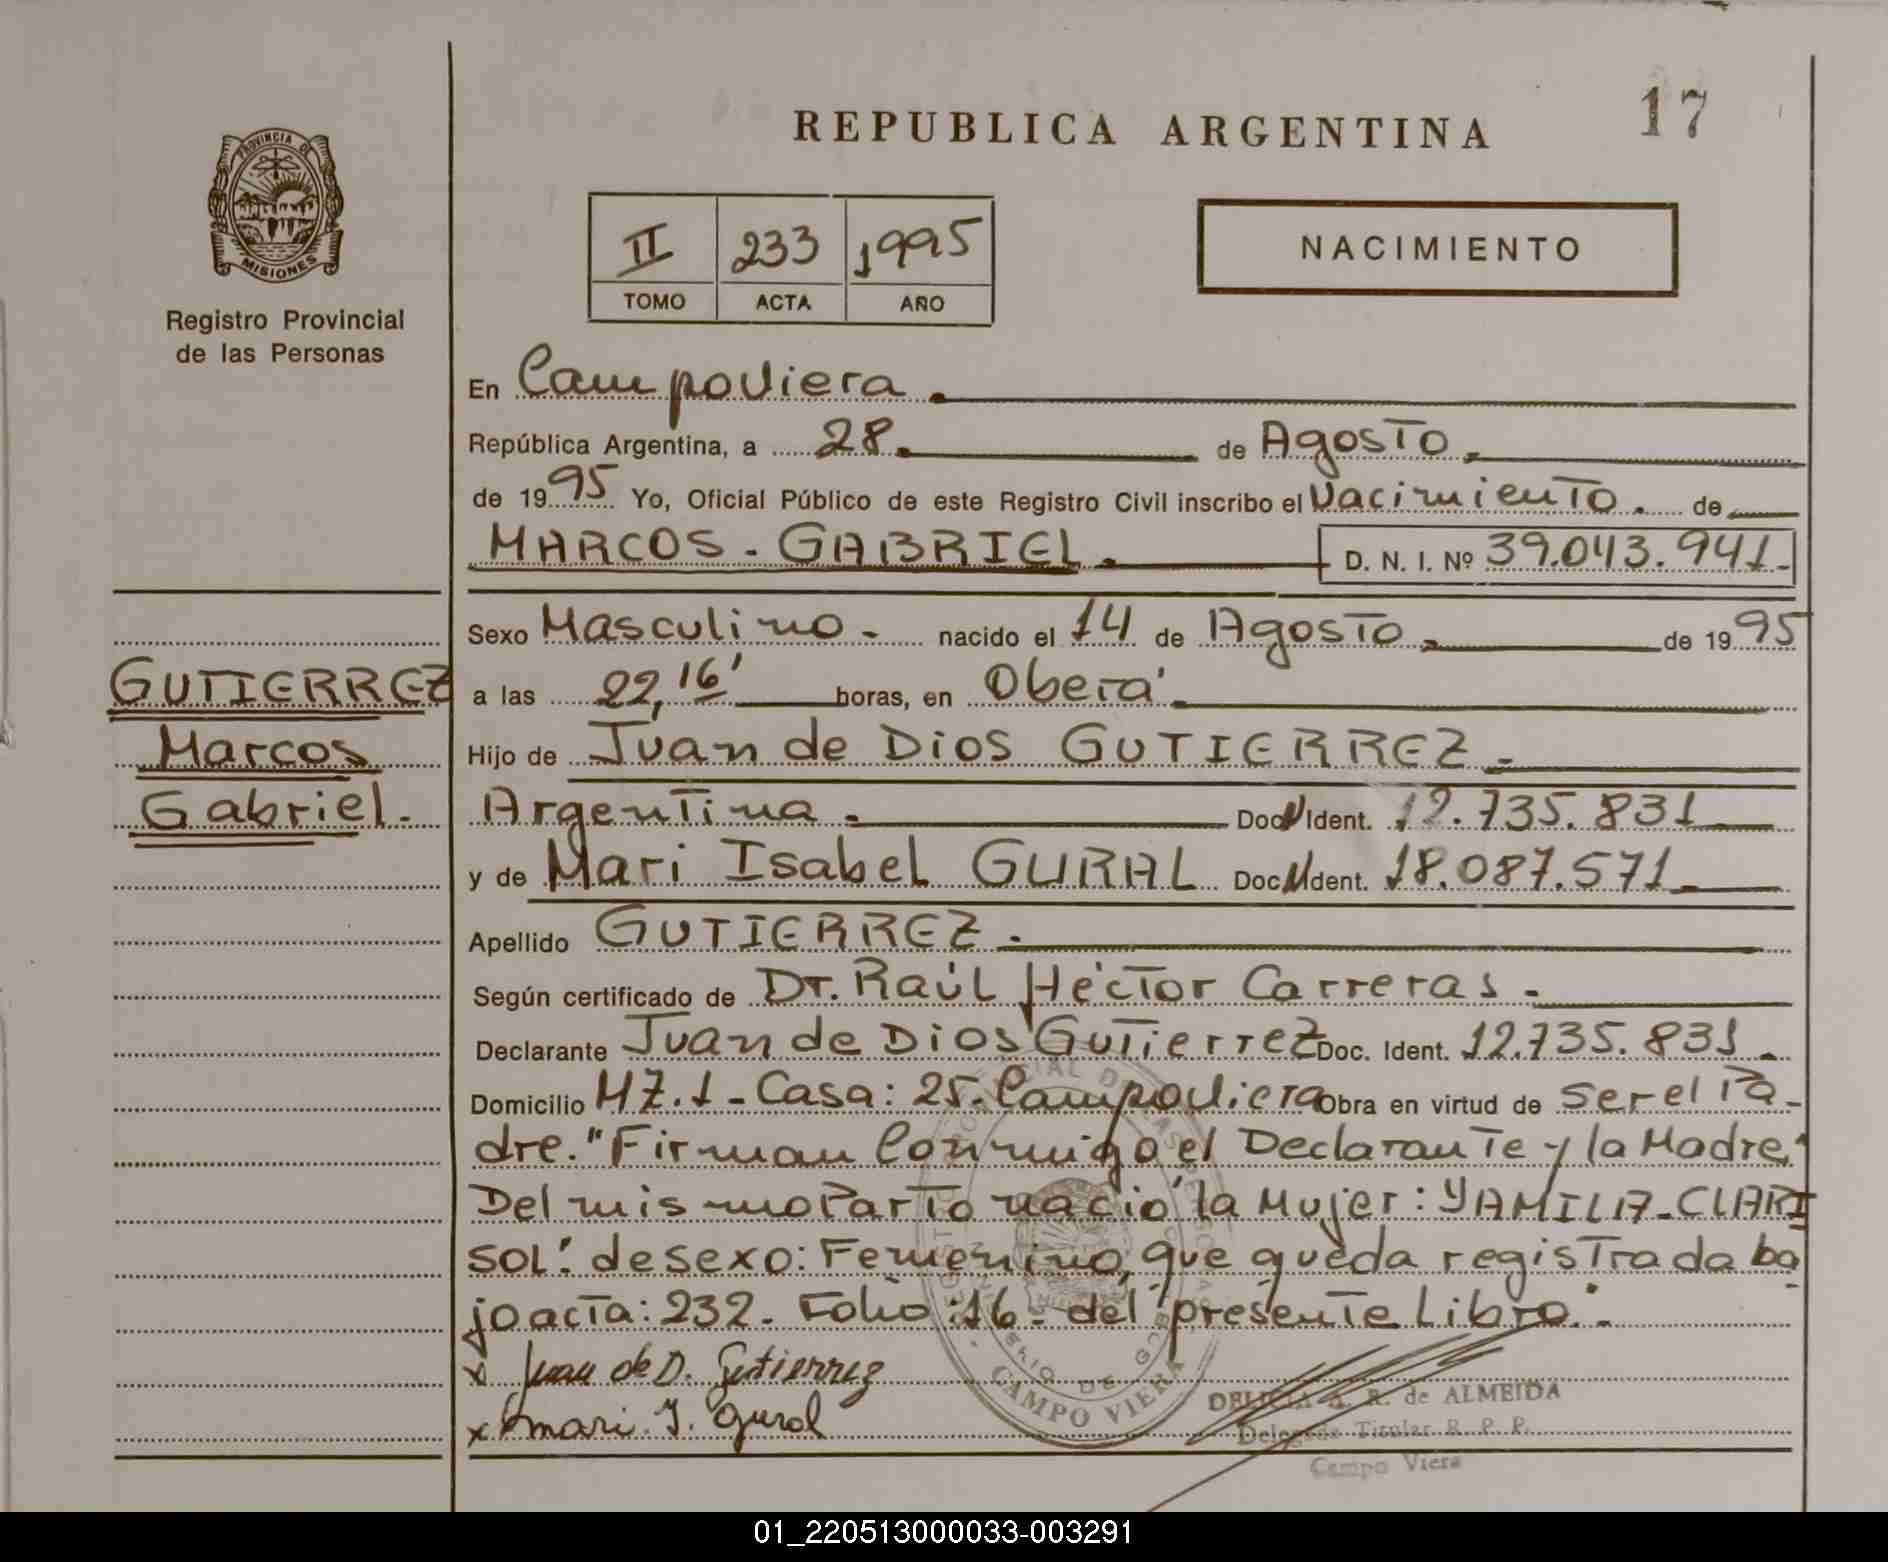 REPUBLICA ARGENTINA
17
PROVINCIA DE
MISIONES
Registro Provincial
de las Personas
II 233 1995
TOMO ACTA AÑO
NACIMIENTO
En Campoviera.
República Argentina, a 28. de Agosto.
de 1995 Yo, Oficial Público de este Registro Civil inscribo el Nacimiento. de
MARCOS - GABRIEL. D. N. I. Nº 39.043.941-
Sexo Masculino - nacido el 14 de Agosto. de 1995
GUTIERREZ
Marcos
Gabriel.-
a las 22,16' horas, en Oberá.
Hijo de Juan de Dios GUTIERREZ.
Argentina. Doc N Ident. 12.735.831
y de Mari Isabel GURAL Doc N Ident. 18.087.571
Apellido GUTIERREZ.
Según certificado de Dr. Raúl Héctor Carreras.
Declarante Juan de Dios Gutierrez Doc. Ident. 12.735.831.
Domicilio MZ.1 - Casa: 25. Campoviera Obra en virtud de ser el Pa-
dre. "Firman Conmigo el Declarante y la Madre,"
Del mismo Parto nació la Mujer: YAMILA-CLARI
SOL". de sexo: Femenino, que queda registrada ba
jo acta: 232. Folio: 16. del presente Libro.-
x Juan de D. Gutierrez
x mari. I. gural
CAMPO VIERA
DELICIA A. R. de ALMEIDA
Delegada Titular R. P. P.
Campo Viera
01_220513000033-003291